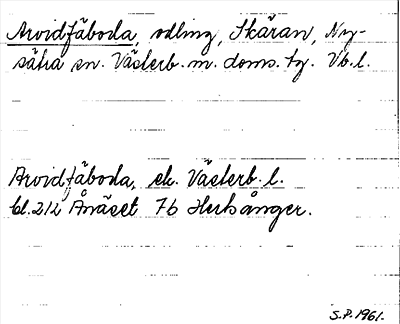 Arvidfäboda, odling, Skäran, Ny-
sätra sn. Västerb. m. doms. tg. Vb.l.
Arvidfäboda, ek. Västerb. l.
bl. 212 Ånäset 7b Hertsånger.
S.P. 1961.